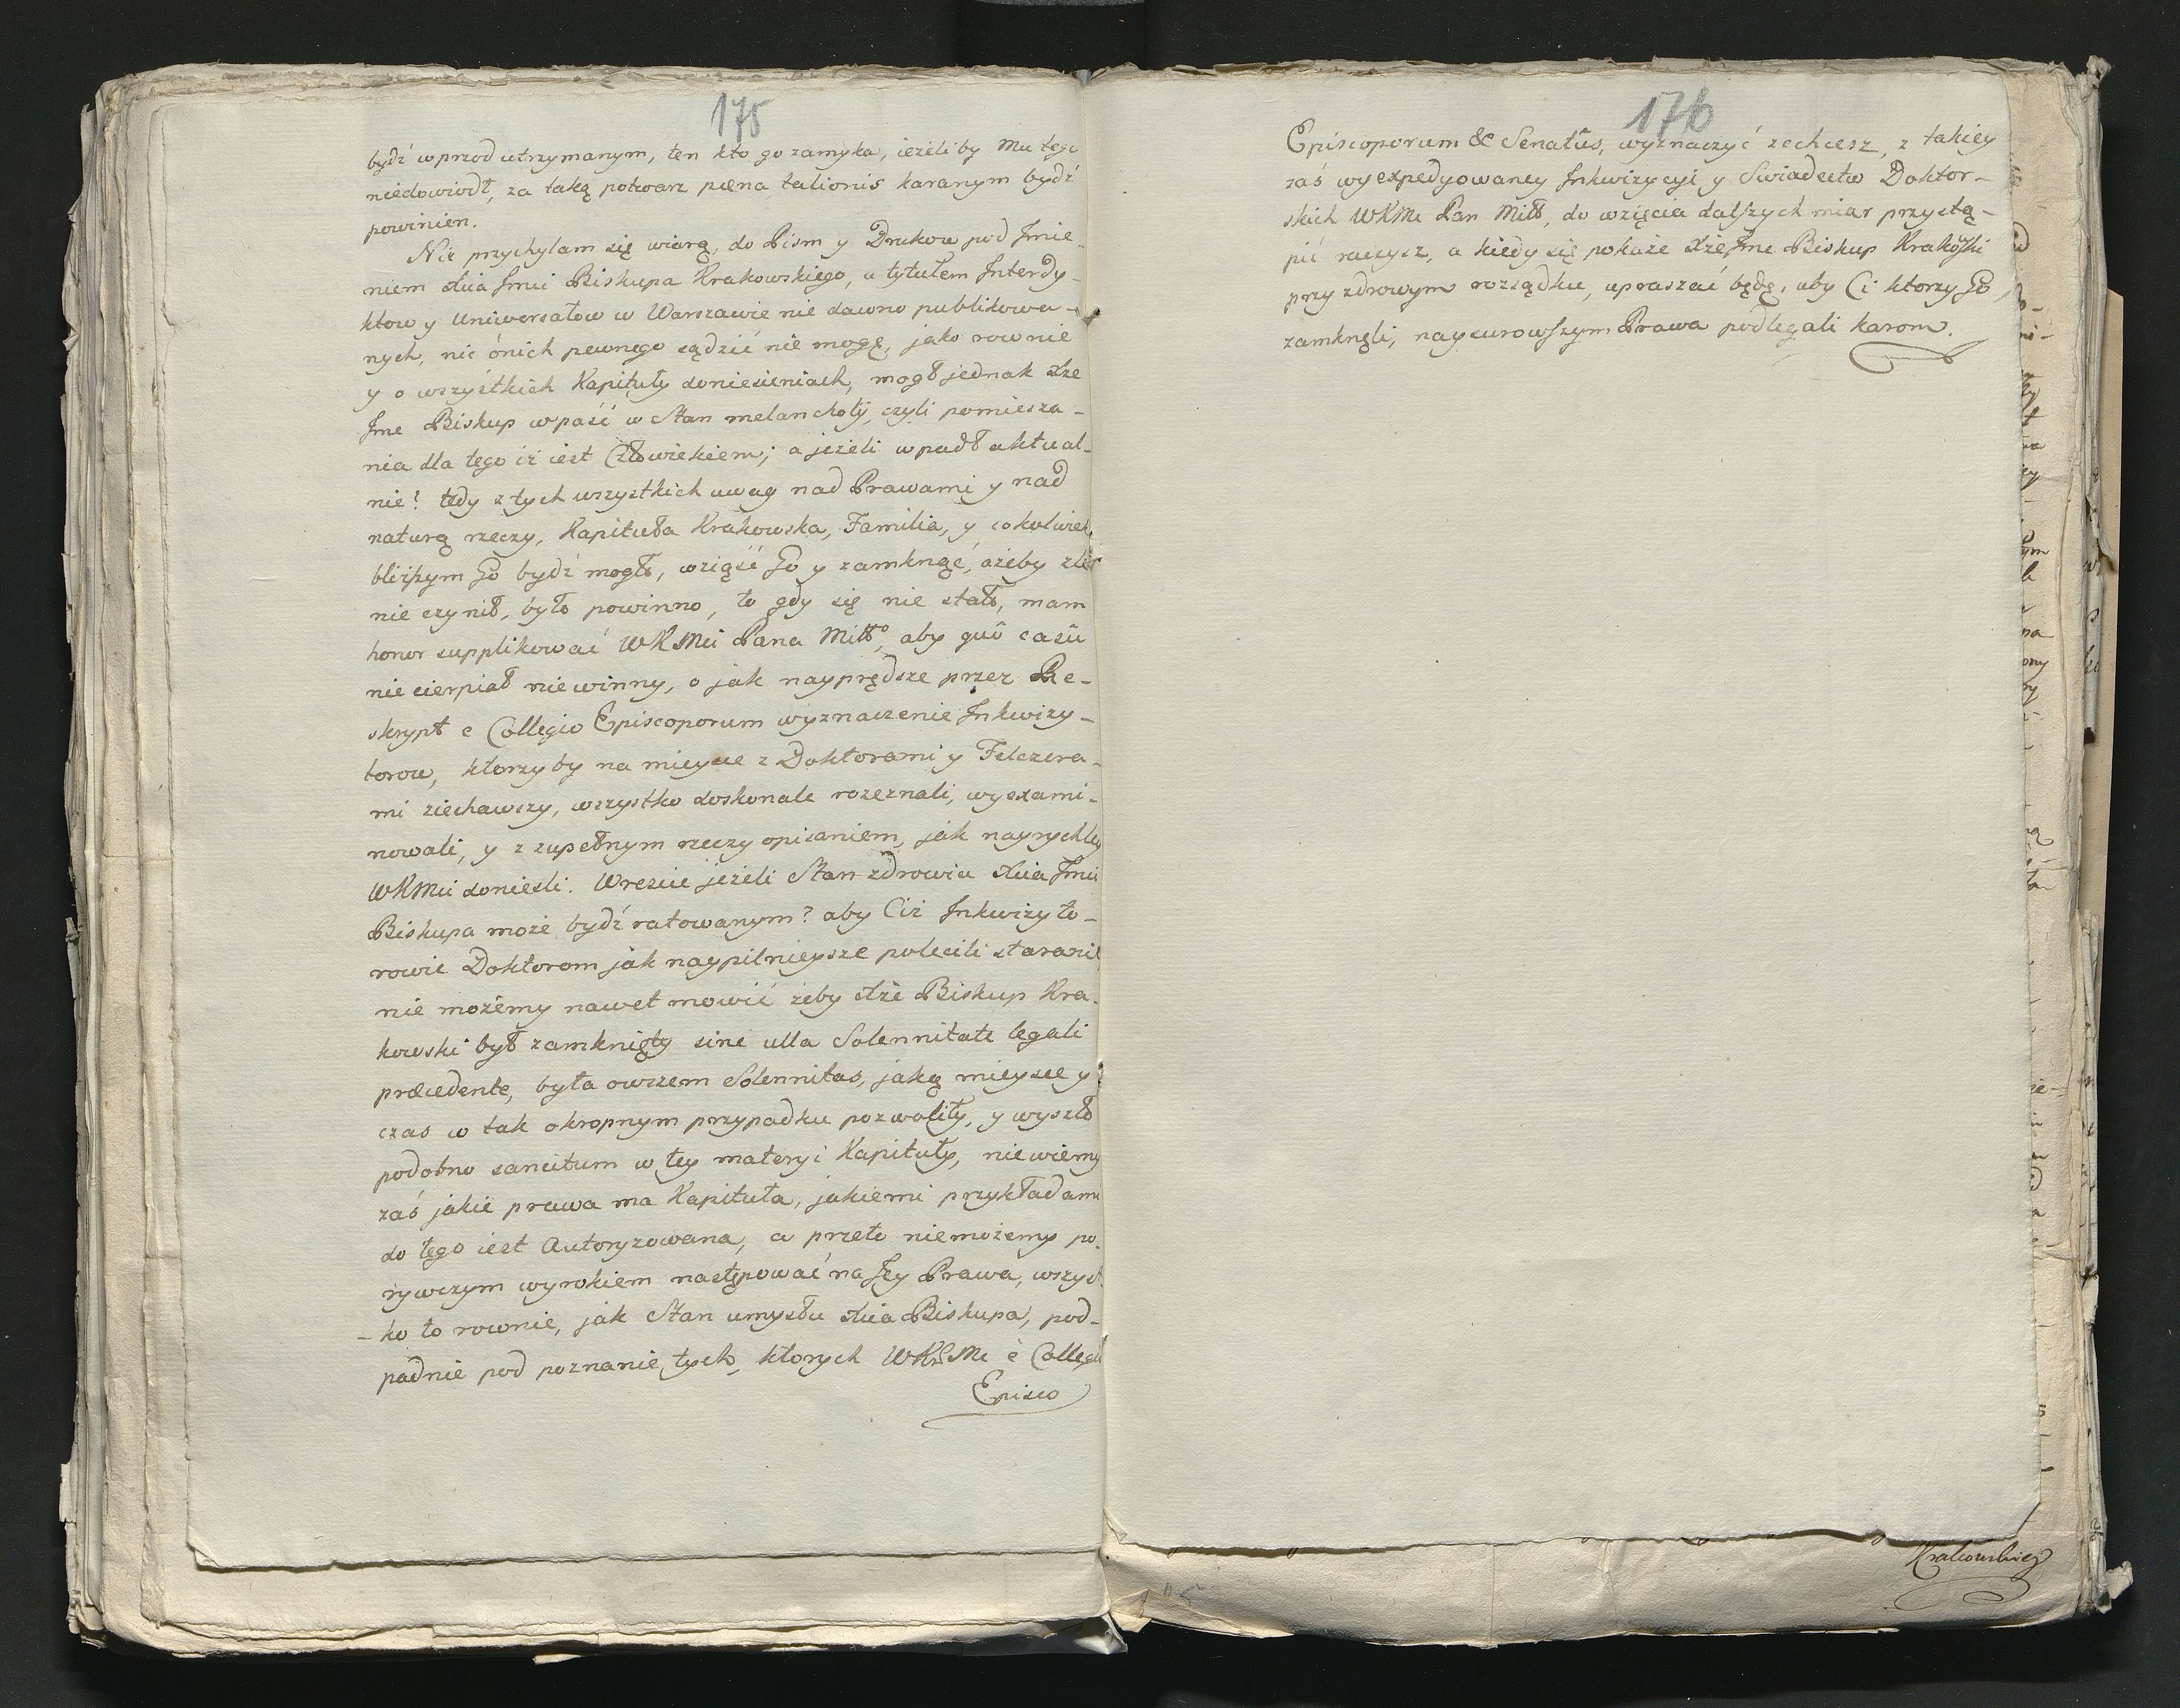 175
bydź wprzod utrzymanym, ten kto go zamyka, ieżeliby Mu tego
niedowiodł, za taką potwarz pæna talionis karanym bydź
powinien.
Nie przychylam się wiarą, do Pism y Drukow pod Imie-
niem Xcia Jmci Biskupa Krakowskiego, a tytułem Interdy-
ktow y Uniwersałow w Warszawie nie dawno publikowa-
nych, nic ónich pewnego sądzić nie mogę, jako rownie
y o wszystkich Kapituły doniesieniach, mogł jednak Xże
Jmc Biskup wpaść w Stan melancholij, czyli pomiesza-
nia dla tego iż iest Człowiekiem; a jeżeli wpadł aktual-
nie? tedy z tych wszystkich uwag nad Prawami y nad
naturą rzeczy, Kapituła Krakowska, Familia, y cokolwiek
bliższym Go bydź mogło, wziąść Go y zamknąć, ażeby zle
nie czynił, było powinno, to gdy się nie stało, mam
honor supplikować WKMci Pana Miłło, aby quô casû
nie cierpiał niewinny, o jak nayprędsze przez Re-
skrypt e Collegio Episcoporum wyznaczenie Inkwizy-
torow, ktorzyby na mieysce z Doktorami y Felczera-
mi ziechawszy, wszystko doskonale rozeznali, wyexami-
nowali, y z zupełnym rzeczy opisaniem, jak nayrychley
WKMci doniesli. Wreście jeżeli Stan zdrowia Xcia Jmci
Biskupa może bydź ratowanym? aby Ciż Inkwizyto-
rowie Doktorom jak naypilnieysze polecili staranie,
nie możemy nawet mowić żeby Xże Biskup Kra-
kowski był zamknięty sine ulla Solennitate legali
præcedente, była owszem Solennitas, jaką mieysce y
czas w tak okropnym przypadku pozwoliły, y wyszło
podobno sancitum w tey materyi Kapituły, niewiemy
zaś jakie prawa ma Kapituła, jakiemi przykładami
do tego iest Autoryzowana, a przeto niemożemy po-
rywczym wyrokiem następować na Jey Prawa, wszyst-
-ko to rownie, jak Stan umysłu Xcia Biskupa, pod-
padnie pod poznanie tych, ktorych WKMc è Collegio
Episco
176
Episcoporum & Senatûs, wyznaczyć zechcesz, z takiey
zaś wyexpedyowaney Inkwizycyi y Swiadectw Doktor-
skich WKMc Pan Miłł, do wzięcia dalszych miar przystą-
pić raczysz, a kiedy się pokaże Xże Jmc Biskup Krakowski
przy zdrowym rozsądku, upraszać będę, aby Ci ktorzy Go,
zamknęli, naysurowszym Prawa podlegali karom.
Krakowskieg